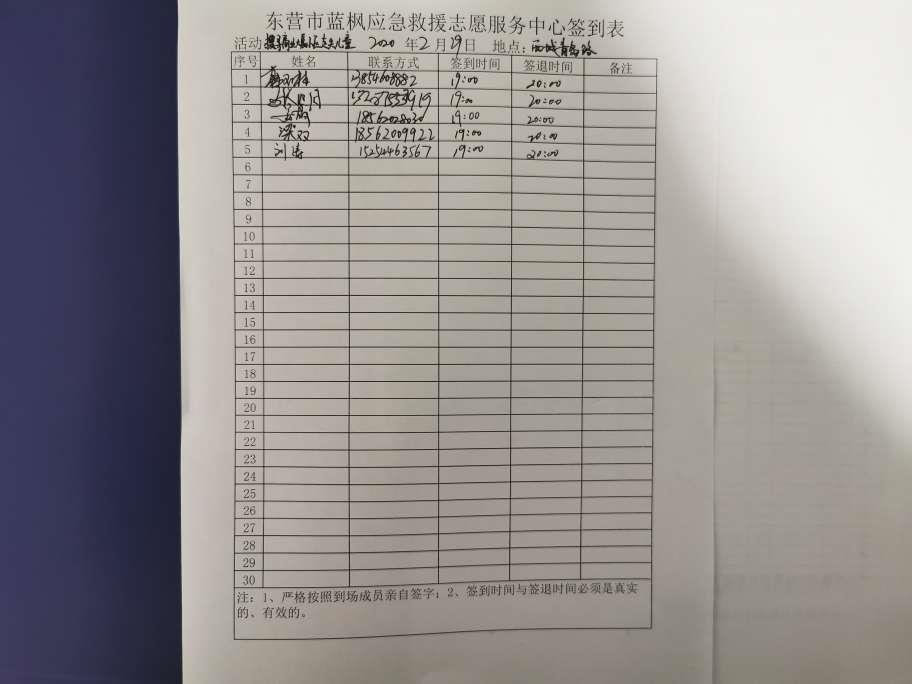 东营市蓝枫应急救援志愿服务中心签到表
活动 2020 年 2 月 29 日 地点：西城青岛路
序号 姓名 联系方式 签到时间 签退时间 备注
1 19:00 20:00
2 19:00 20:00
3 18562028030 19:00 20:00
4 梁双 18562009922 19:00 20:00
5 刘涛 15254463567 19:00 20:00
6
7
8
9
10
11
12
13
14
15
16
17
18
19
20
21
22
23
24
25
26
27
28
29
30
注：1、严格按照到场成员亲自签字；2、签到时间与签退时间必须是真实
的、有效的。